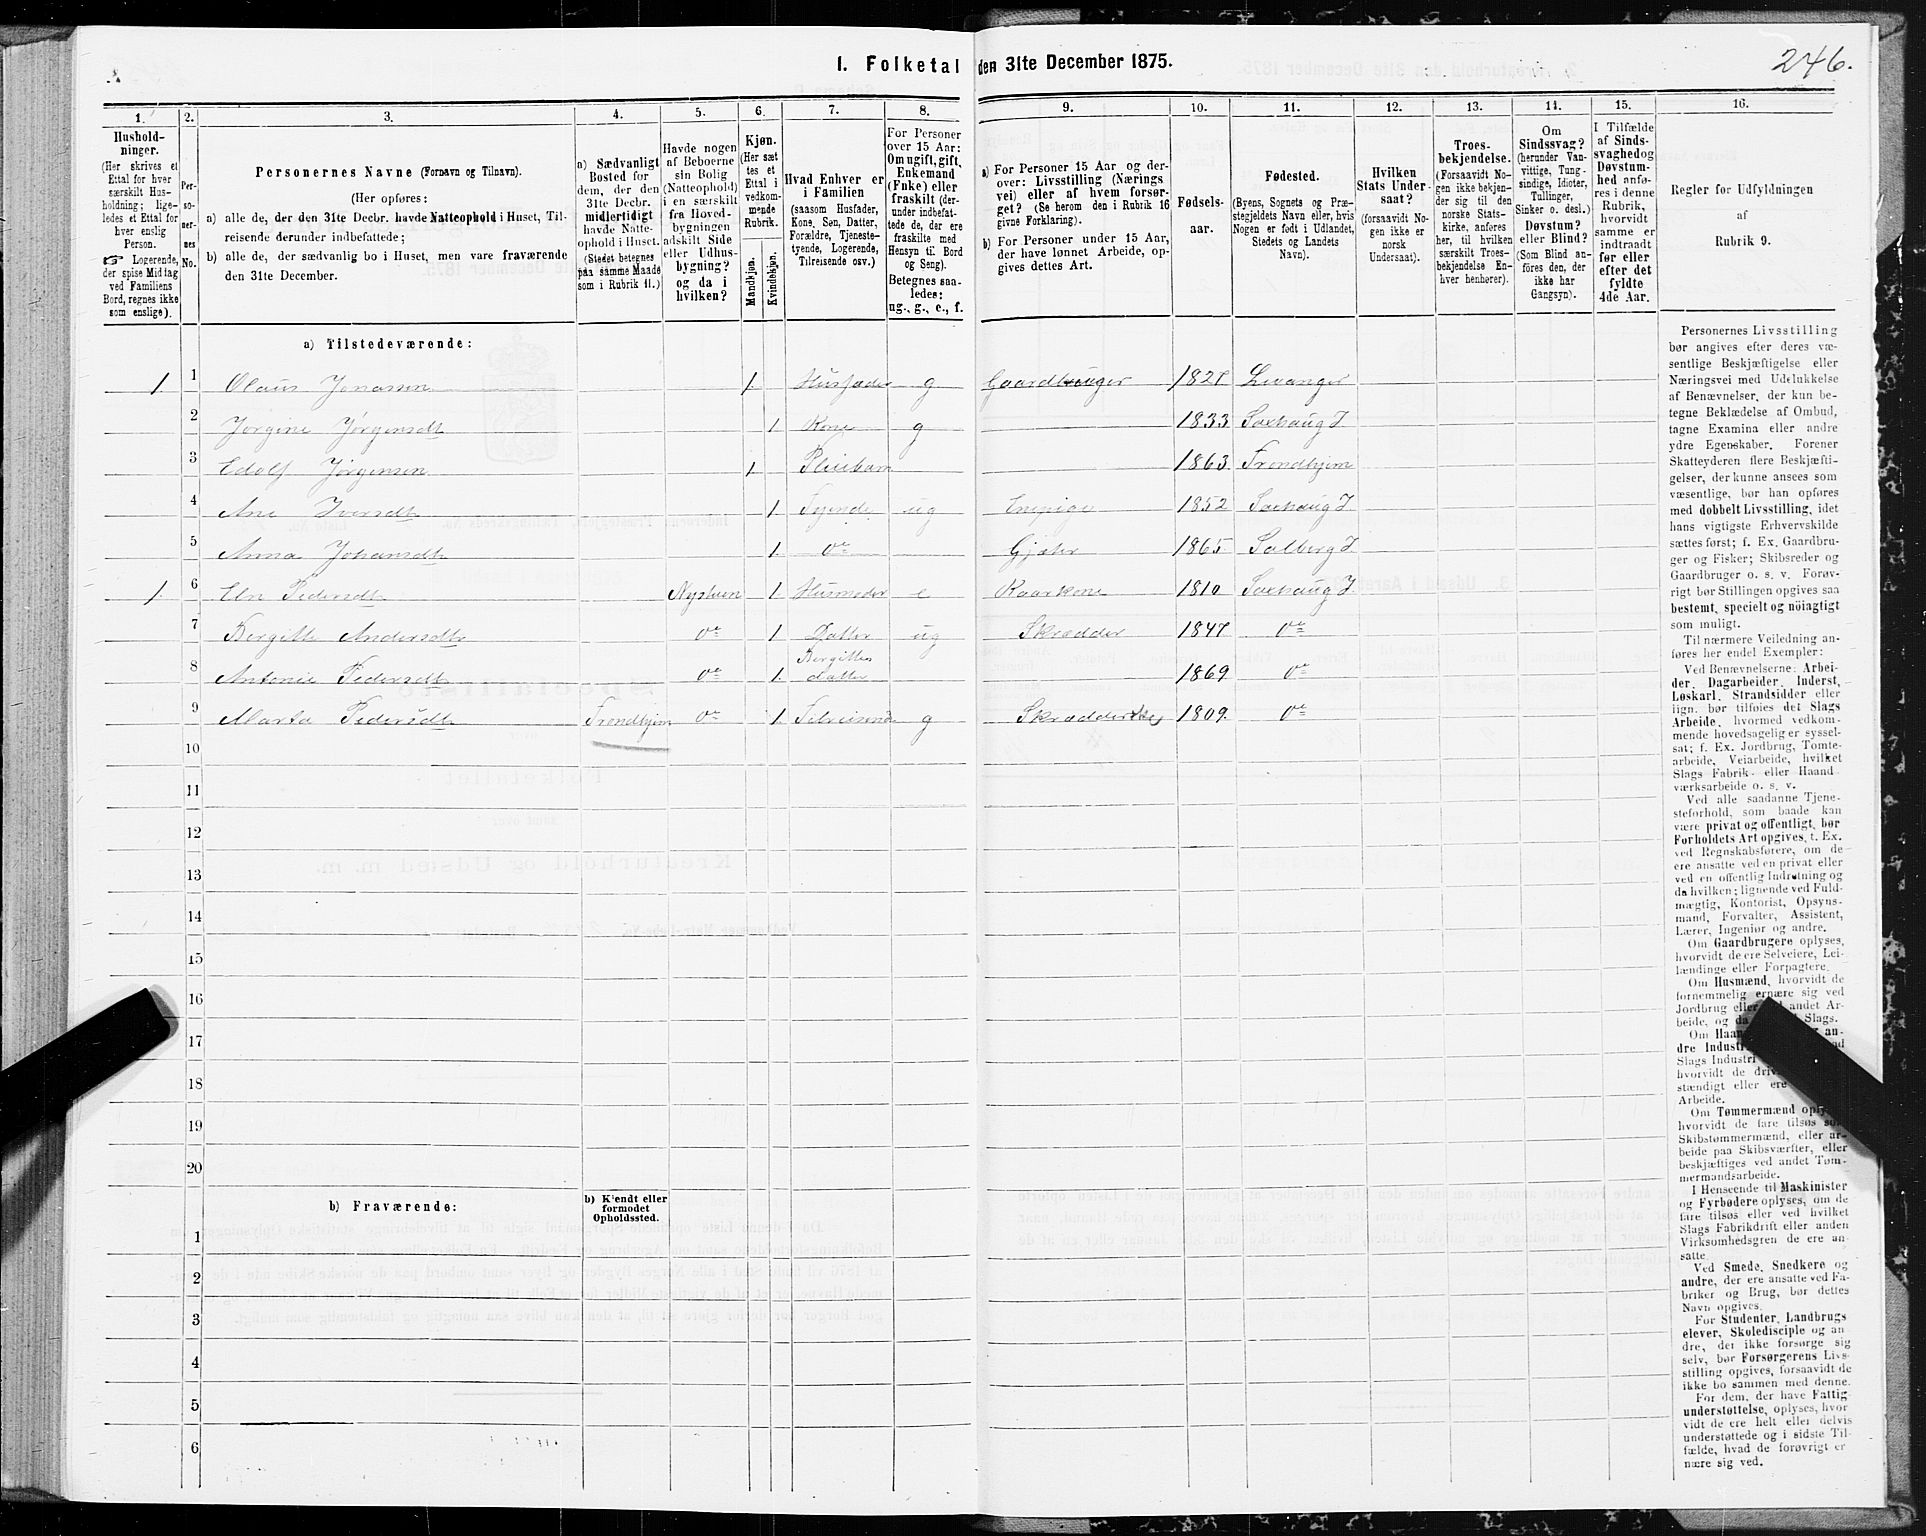 246.
1. Folketal den 31te December 1875.
1. 2. 3. 4. 5. 6. 7. 8. 9. 10. 11. 12. 13. 14. 15. 16.
Hushold-
ninger.
(Her skrives et
Ettal for hver
særskilt Hus-
holdning; lige-
ledes et Ettal for
hver enslig
Person.
☞ Logerende,
der spise Middag
ved Familiens
Bord, regnes ikke
som enslige).
Per-
so-
ner-
nes
No.
Personernes Navne (Fornavn og Tilnavn).
(Her opføres:
a) alle de, der den 31te Decbr. havde Natteophold i Huset, Til-
reisende derunder indbefattede;
b) alle de, der sædvanlig bo i Huset, men vare fraværende
den 31te December.
a) Sædvanligt
Bosted for
dem, der den
31te Decbr.
midlertidigt
havde Natte-
ophold i Huset.
(Stedet betegnes
paa samme Maade
som i Rubrik 11.)
Havde nogen
af Beboerne
sin Bolig
(Natteophold)
i en særskilt
fra Hoved-
bygningen
adskilt Side
eller Udhus-
bygning?
og da i
hvilken?
Kjøn.
(Her sæt
tes et
Ettal i
vedkom-
mende
Rubrik.
Mandkjøn.
Kvindekjøn.
Hvad Enhver er
i Familien
(saasom Husfader,
Kone, Søn, Datter,
Forældre, Tjeneste-
tyende, Logerende,
Tilreisende osv.)
For Personer
over 15 Aar:
Om ugift, gift,
Enkemand
(Enke) eller
fraskilt (der-
under indbefat-
tede de, der ere
fraskilte med
Hensyn til Bord
og Seng).
Betegnes saa-
ledes:
ug., g., e., f.
a) For Personer 15 Aar og der-
over: Livsstilling (Nærings
vei) eller af hvem forsør-
get? (Se herom den i Rubrik 16
givne Forklaring).
b) For Personer under 15 Aar,
der have lønnet Arbeide, op-
gives dettes Art.
Fødsels-
aar.
Fødested.
(Byens, Sognets og Præ-
stegjeldets Navn eller, hvis
Nogen er født i Udlandet,
Stedets og Landets
Navn).
Hvilken
Stats Under-
saat?
(forsaavidt No-
gen ikke er
norsk
Undersaat).
Troes-
bekjendelse.
(Forsaavidt No-
gen ikke bekjen-
der sig til den
norske Stats-
kirke, anføres
her, til hvilken
særskilt Troes-
bekjendelse En-
hver henhører).
Om
Sindssvag?
(herunder Van-
vittige, Tung-
sindige, Idioter,
Tullinger,
Sinker o. desl.)
Døvstum?
eller Blind?
(Som Blind an-
føres den, der
ikke har
Gangsyn).
I Tilfælde
af Sinds-
svaghed og
Døvstum-
hed anfø-
res i denne
Rubrik,
hvorvidt
samme er
indtraadt
før eller
efter det
fyldte
4de Aar.
Regler for Udfyldningen
af
Rubrik 9.
a) Tilstedeværende:
1 1 Olaus Jonassen 1 Husfader g Gaardbruger 1827 Levanger
2 Jørgine Jørgensdt 1 Kone g 1833 Saxhaug I
3 Edolf Jørgensen 1 Pleiebarn 1863 Trondhjem
4 Ane Iversdt 1 Tyende ug 1852 Saxhaug I
5 Anna Johansdt 1 do Gjæter 1865 Salberg I
1 6 Eln Pedersdt Nystuen 1 Husmoder e Kaarkone 1810 Saxhaug I
7 Bergitte Andersdt do 1 Datter ug Skrædder 1847 do
8 Antonie Pedersdt do 1 Bergittes datter 1869 do
9 Marta Pedersdt Trondhjem do 1 Tilreisende g 1809 do
10
11
12
13
14
15
16
17
18
19
20
b) Fraværende:
b) Kjendt eller
formodet
Opholdssted.
1
2
3
4
5
6
Personernes Livsstilling
bør angives efter deres væ-
sentlige Beskjæftigelse eller
Næringsvei med Udelukkelse
af Benævnelser, der kun be-
tegne Beklædelse af Ombud,
tagne Examina eller andre
ydre Egenskaber. Forener
Skatteyderen flere Beskjæfti-
gelser, der kunne ansees som
væsentlige, bør han opføres
med dobbelt Livsstilling, idet
hans vigtigste Erhvervskilde
sættes først; f. Ex. Gaardbru-
ger og Fisker; Skibsreder og
Gaardbruger o. s. v. Forøv-
rigt bør Stillingen opgives saa
bestemt, specielt og nöiagtigt
som muligt.
Til nærmere Veiledning an-
føres her endel Exempler:
Ved Benævnelserne: Arbei-
der, Dagarbeider, Inderst,
Løskarl, Strandsidder eller
lign. bør tilføies det Slags
Arbeide, hvormed vedkom-
mende hovedsagelig er syssel-
sat; f. Ex. Jordbrug, Tomte-
arbeide, Veiarbeide, hvilket
Slags Fabrik- eller Haand
værksarbeide o. s. v.
Ved alle saadanne Tjene-
steforhold, som baade kan
være privat og offentligt, bør
Forholdets Art opgives, t. Ex.
ved Regnskabsførere, om de
ere ansatte ved en privat eller
ved en offentlig Indretning og
da hvilken; lignende ved Fuld-
mægtig, Kontorist, Opsyns-
mand, Forvalter, Assistent,
Lærer, Ingeniør og andre.
Om Gaardbrugere oplyses,
hvorvidt de ere Selveiere, Lei-
lændinge eller Forpagtere.
Om Husmænd, hvorvidt de
fornemmelig ernære sig ved
Jordbrug eller ved andet Ar-
beide, og da Slags.
Om
dre Industri
Slags Industri
hvorvidt de
stændigt eller ere
Arbeide.
Om Tømmermænd
hvorvidt de fare tilsøs som
Skibstømmermænd, eller ar-
beide paa Skibsværfter, eller
beskjæftiges ved andet Tøm-
mermandsarbeide.
I Henseende til Maskinister
og Fyrbødere oplyses, om de
fare tilsøs eller ved hvilket
Slags Fabrikdrift eller anden
Virksomhedsgren de ere an-
satte.
Ved Smede, Snedkere og
andre, der ere ansatte ved Fa-
briker og Brug, bør dettes
Navn opgives.
For Studenter, Landbrugs
elever, Skoledisciple og an
dre, der ikke forsørge sig
selv, bør Forsørgerens Livs-
stilling opgives, forsaavidt de
ikke bo sammen med denne.
For dem, der have Fattig-
understøttelse, oplyses, hvor
vidt de ere helt eller delvis
understøttede og i sidste Til-
fælde, hvad de forøvrigt er
nære sig ved.